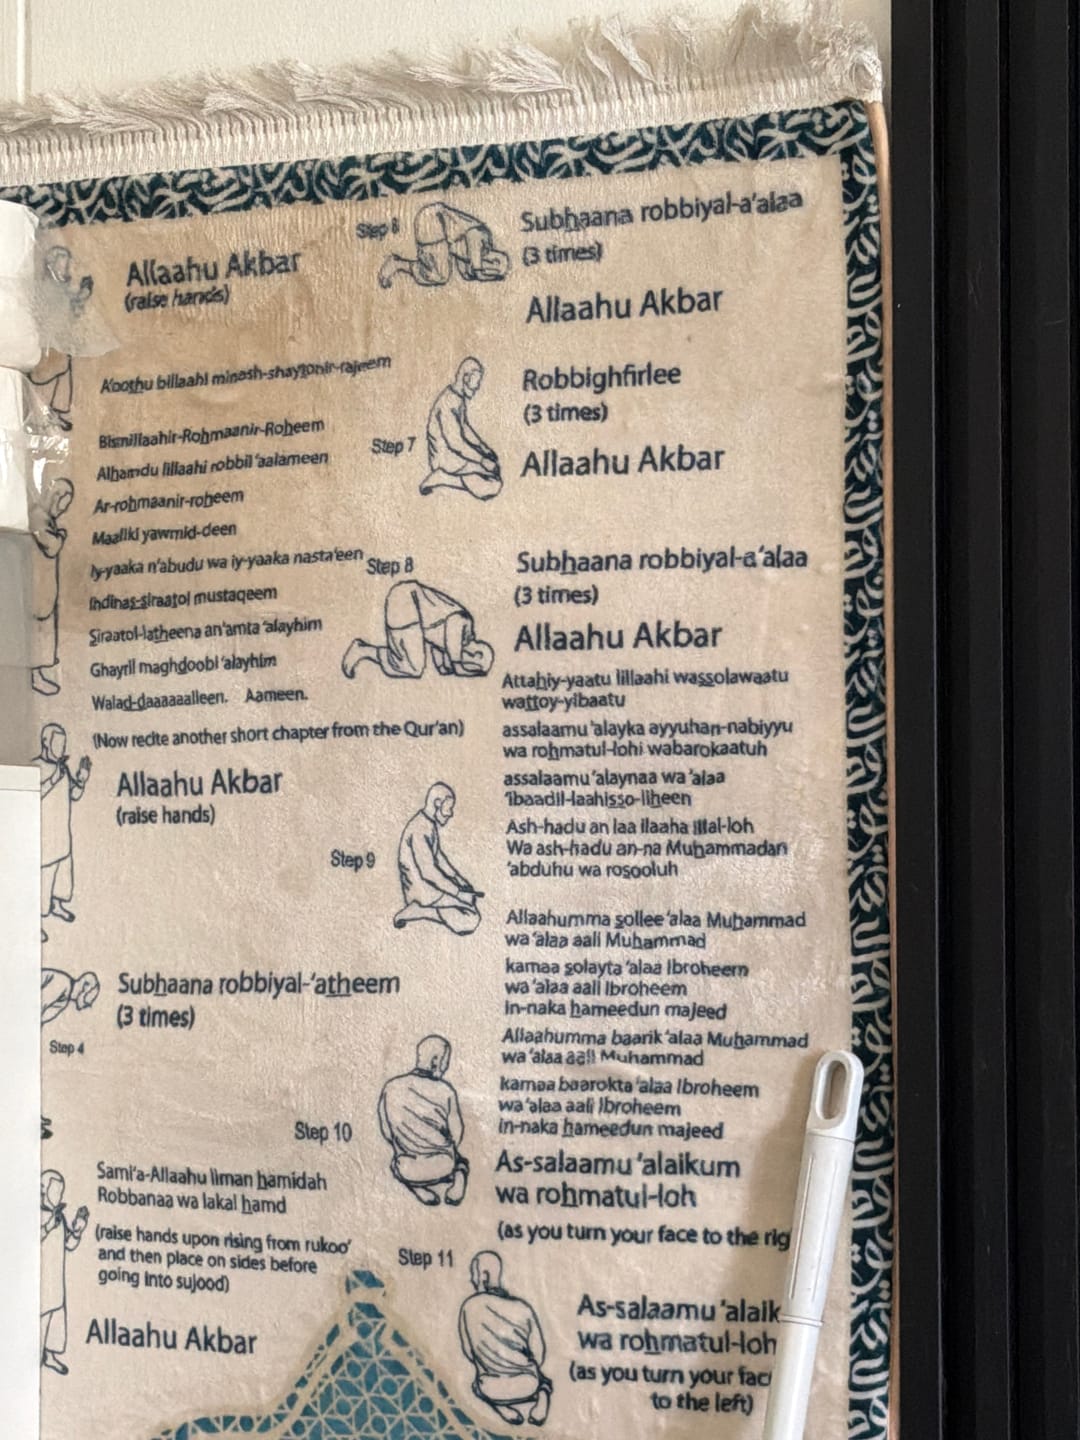 Allaahu Akbar
(raise hands)
A'oothu billaahi minash-shaytonir-rajeem
Bismillaahir-Rohmaanir-Roheem
Alhamdu lillaahi robbil 'aalameen
Ar-rohmaanir-roheem
Maaliki yawmid-deen
Iy-yaaka n'abudu wa iy-yaaka nasta'een
Ihdinas-siraatol mustaqeem
Siraatol-latheena an'amta 'alayhim
Ghayril maghdoobi 'alayhim
Walad-daaaaaalleen. Aameen.
(Now recite another short chapter from the Qur'an)
Allaahu Akbar
(raise hands)
Subhaana robbiyal-'atheem
(3 times)
Step 4
Sami'a-Allaahu liman hamidah
Robbanaa wa lakal hamd
(raise hands upon rising from rukoo'
and then place on sides before
going into sujood)
Allaahu Akbar
Step 6
Subhaana robbiyal-a'alaa
(3 times)
Allaahu Akbar
Step 7
Robbighfirlee
(3 times)
Allaahu Akbar
Step 8
Subhaana robbiyal-a'alaa
(3 times)
Allaahu Akbar
Step 9
Attahiy-yaatu lillaahi wassolawaatu
wattoy-yibaatu
assalaamu 'alayka ayyuhan-nabiyyu
wa rohmatul-lohi wabarokaatuh
assalaamu 'alaynaa wa 'alaa
'ibaadil-laahisso-liheen
Ash-hadu an laa ilaaha illal-loh
Wa ash-hadu an-na Muhammadan
'abduhu wa rosooluh
Allaahumma sollee 'alaa Muhammad
wa 'alaa aali Muhammad
kamaa solayta 'alaa Ibroheem
wa 'alaa aali Ibroheem
In-naka hameedun majeed
Allaahumma baarik 'alaa Muhammad
wa 'alaa aali Muhammad
kamaa baarokta 'alaa Ibroheem
wa 'alaa aali Ibroheem
in-naka hameedun majeed
Step 10
As-salaamu 'alaikum
wa rohmatul-loh
(as you turn your face to the rig
Step 11
As-salaamu 'alaik
wa rohmatul-loh
(as you turn your fac
to the left)